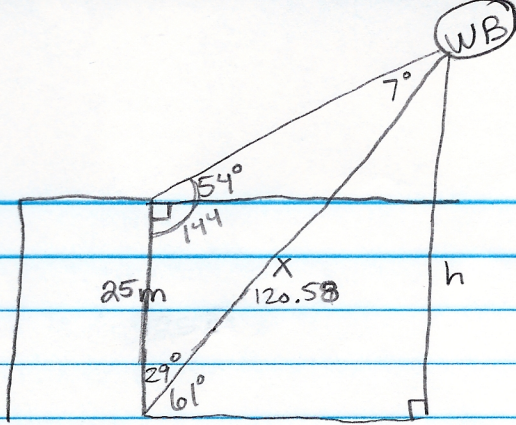 WB
7°
54°
144
25m
x
120.58
h
29°
61°